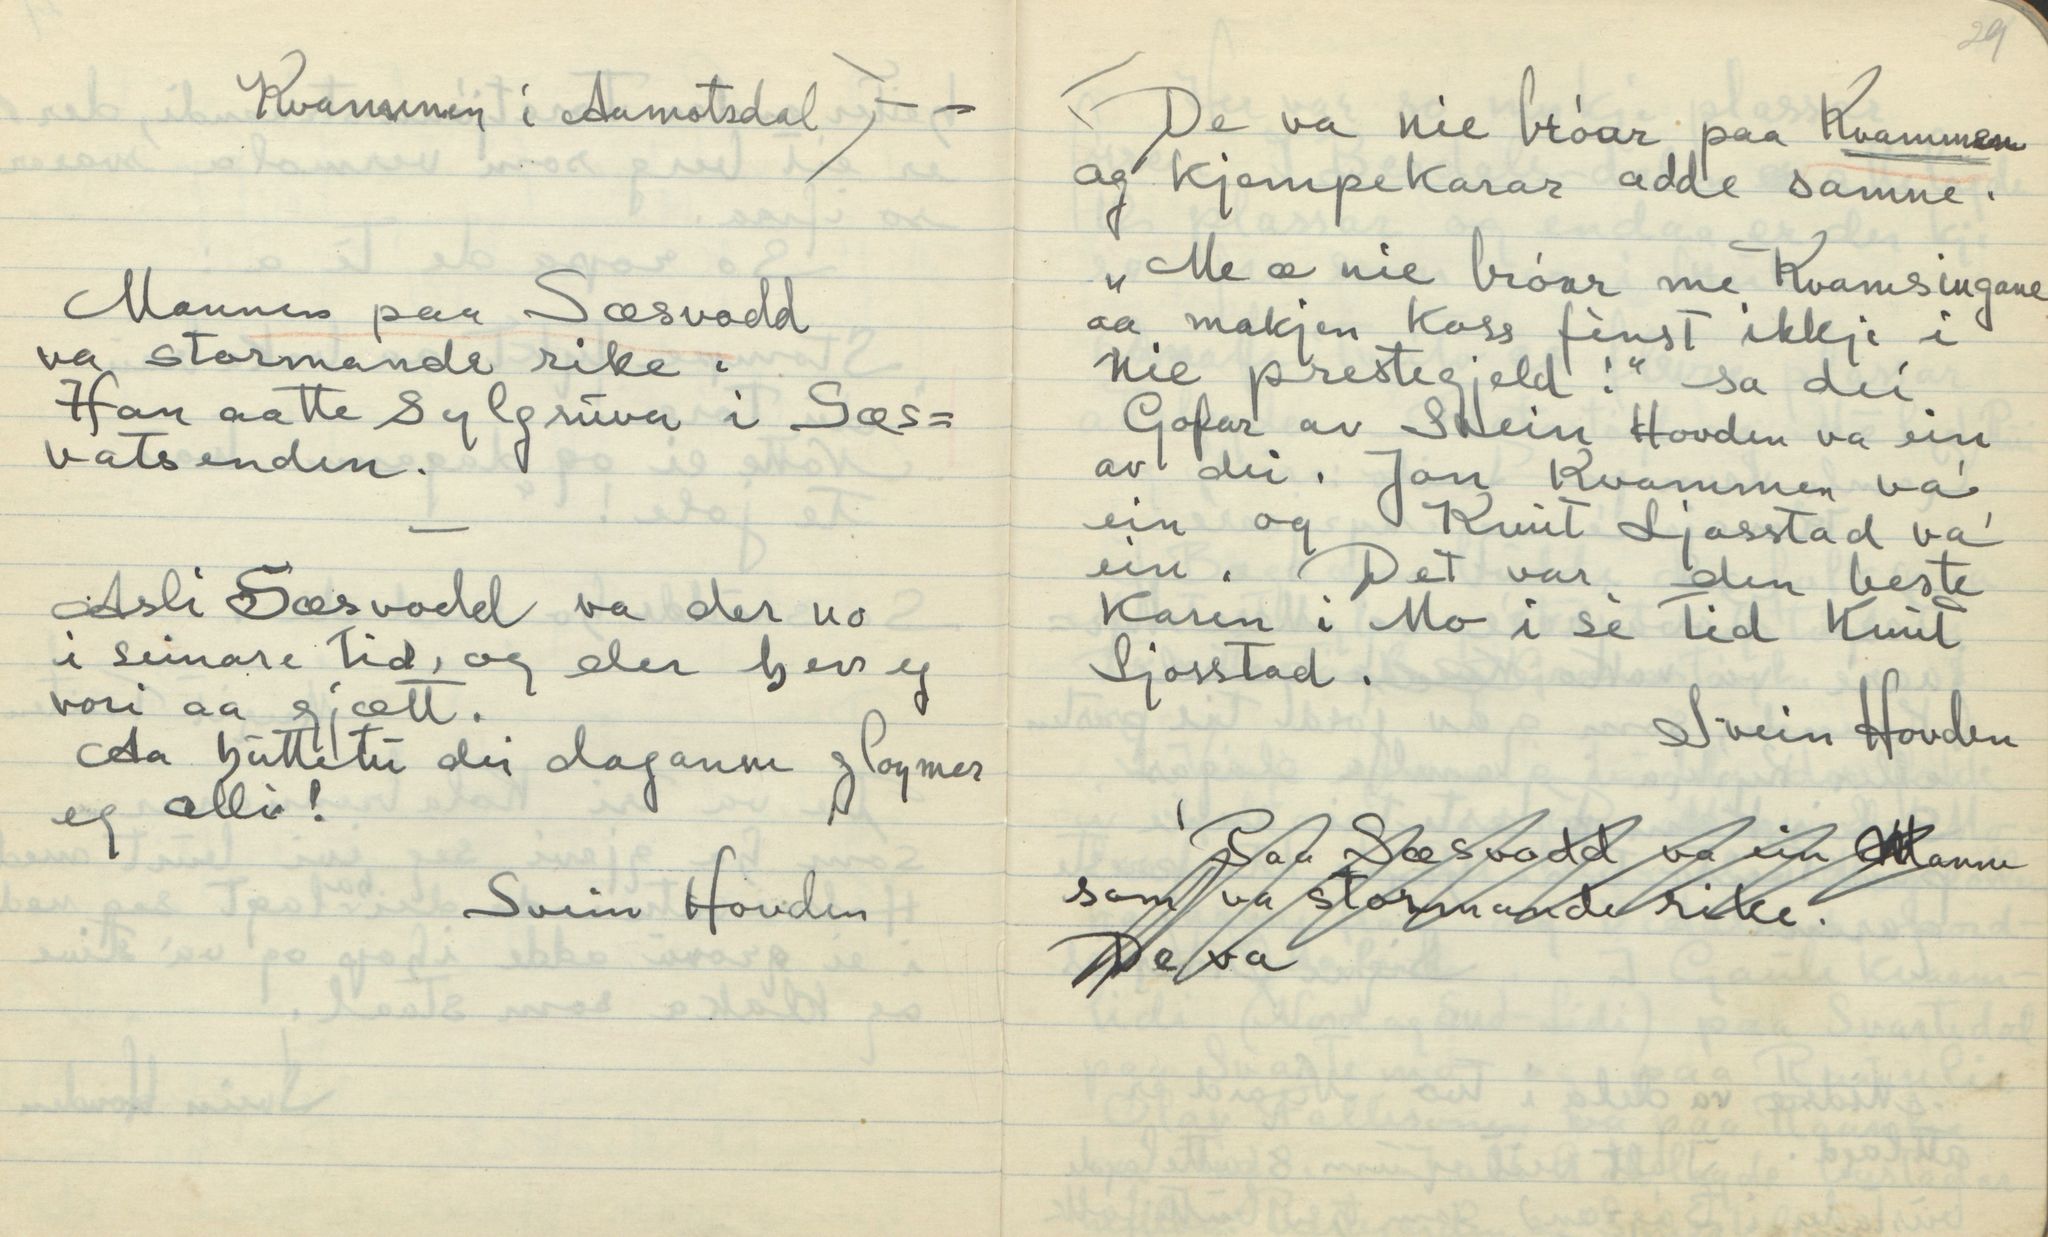 Kvammen i Aamotsdal) - =
Mannen paa Sæsvodd
va stormande rike.
Han aatte Sylgrùva i Sæs=
vatsenden.
—
Asli Sæsvodd va der no
i seinare tid, og der hev eg
vori aa gjætt.
Aa hùttetù dei dagann gløymer
eg alli!
Svein Hovden
29
De va nie bróar paa Kvammen
og kjempekarar adde samne.
„Me æ nie bróar me Kvamsingane
aa makjen Koss fìnst ikkje i
nie prestegjeld!“ sa dei
Gofar av Svein Hovden va ein
av dei. Jon Kvammen vá
ein og Knùt Ljosstad vá
ein. Det var den beste
Karen i Mo i sè tid Knùt
Ljosstad.
Svein Hovden
Paa Sæsvodd va ein Mann
som va stormande rike.
De va